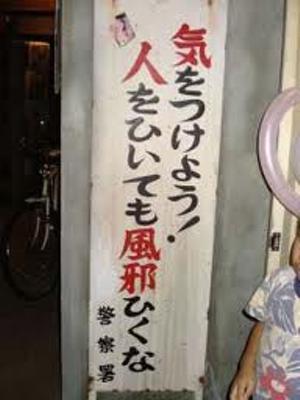 気をつけよう!
人をひいても風邪ひくな
警察署